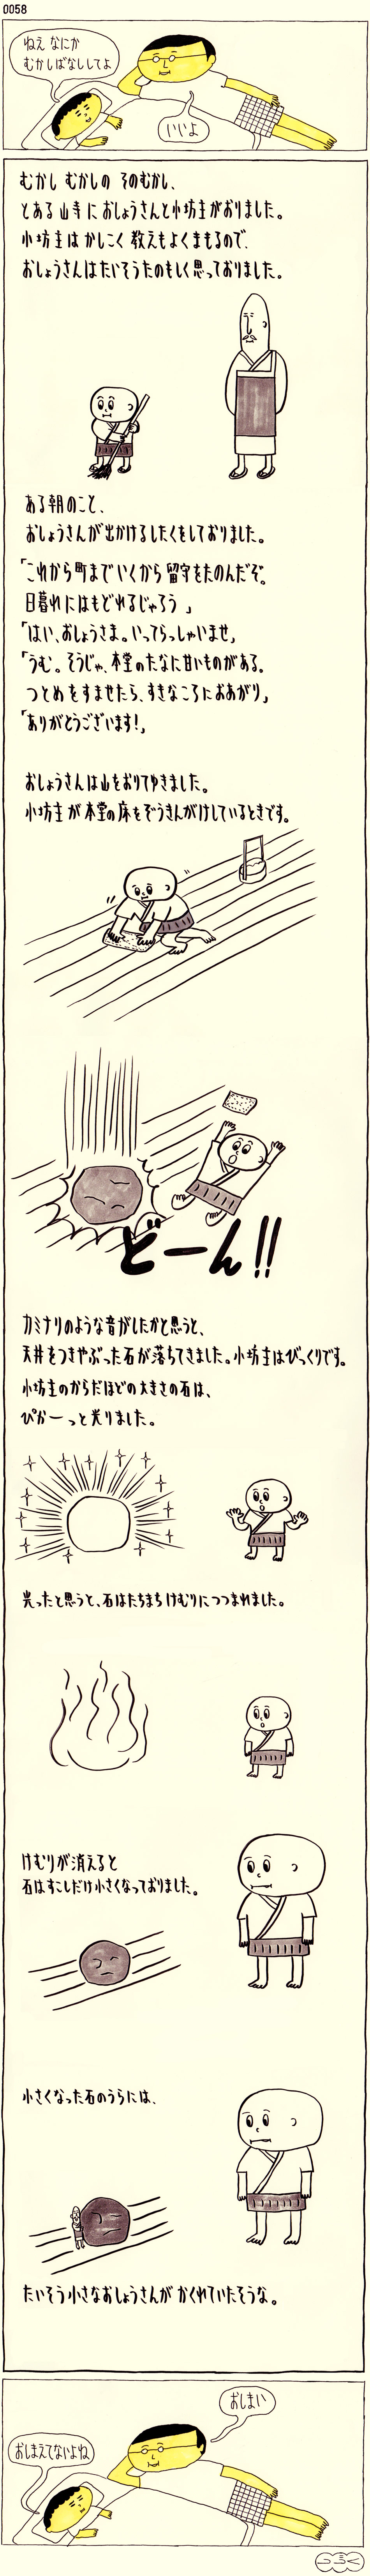 0058
ねえ なにか
むかしばなししてよ
いいよ
むかし むかしの そのむかし、
とある 山寺に おしょうさんと小坊主がおりました。
小坊主は かしこく 教えもよくまもるので、
おしょうさんはたいそうたのもしく思っておりました。
ある朝のこと、
おしょうさんが出かけるしたくをしておりました。
「これから町までいくから 留守をたのんだぞ。
日暮れにはもどれるじゃろう 」
「はい、おしょうさま。いってらっしゃいませ」
「うむ。そうじゃ、本堂のたなに甘いものがある。
つとめをすませたら、すきなころにおあがり」
「ありがとうございます!」
おしょうさんは山をおりてゆきました。
小坊主が本堂の床をぞうきんがけしているときです。
どーん!!
カミナリのような音がしたかと思うと、
天井をつきやぶった石が落ちてきました。小坊主はびっくりです。
小坊主のからだほどの大きさの石は、
ぴかーっと光りました。
光ったと思うと、石はたちまちけむりにつつまれました。
けむりが消えると
石はすこしだけ小さくなっておりました。
小さくなった石のうらには、
たいそう小さなおしょうさんが かくれていたそうな。
おしまい
おしまえてないよね